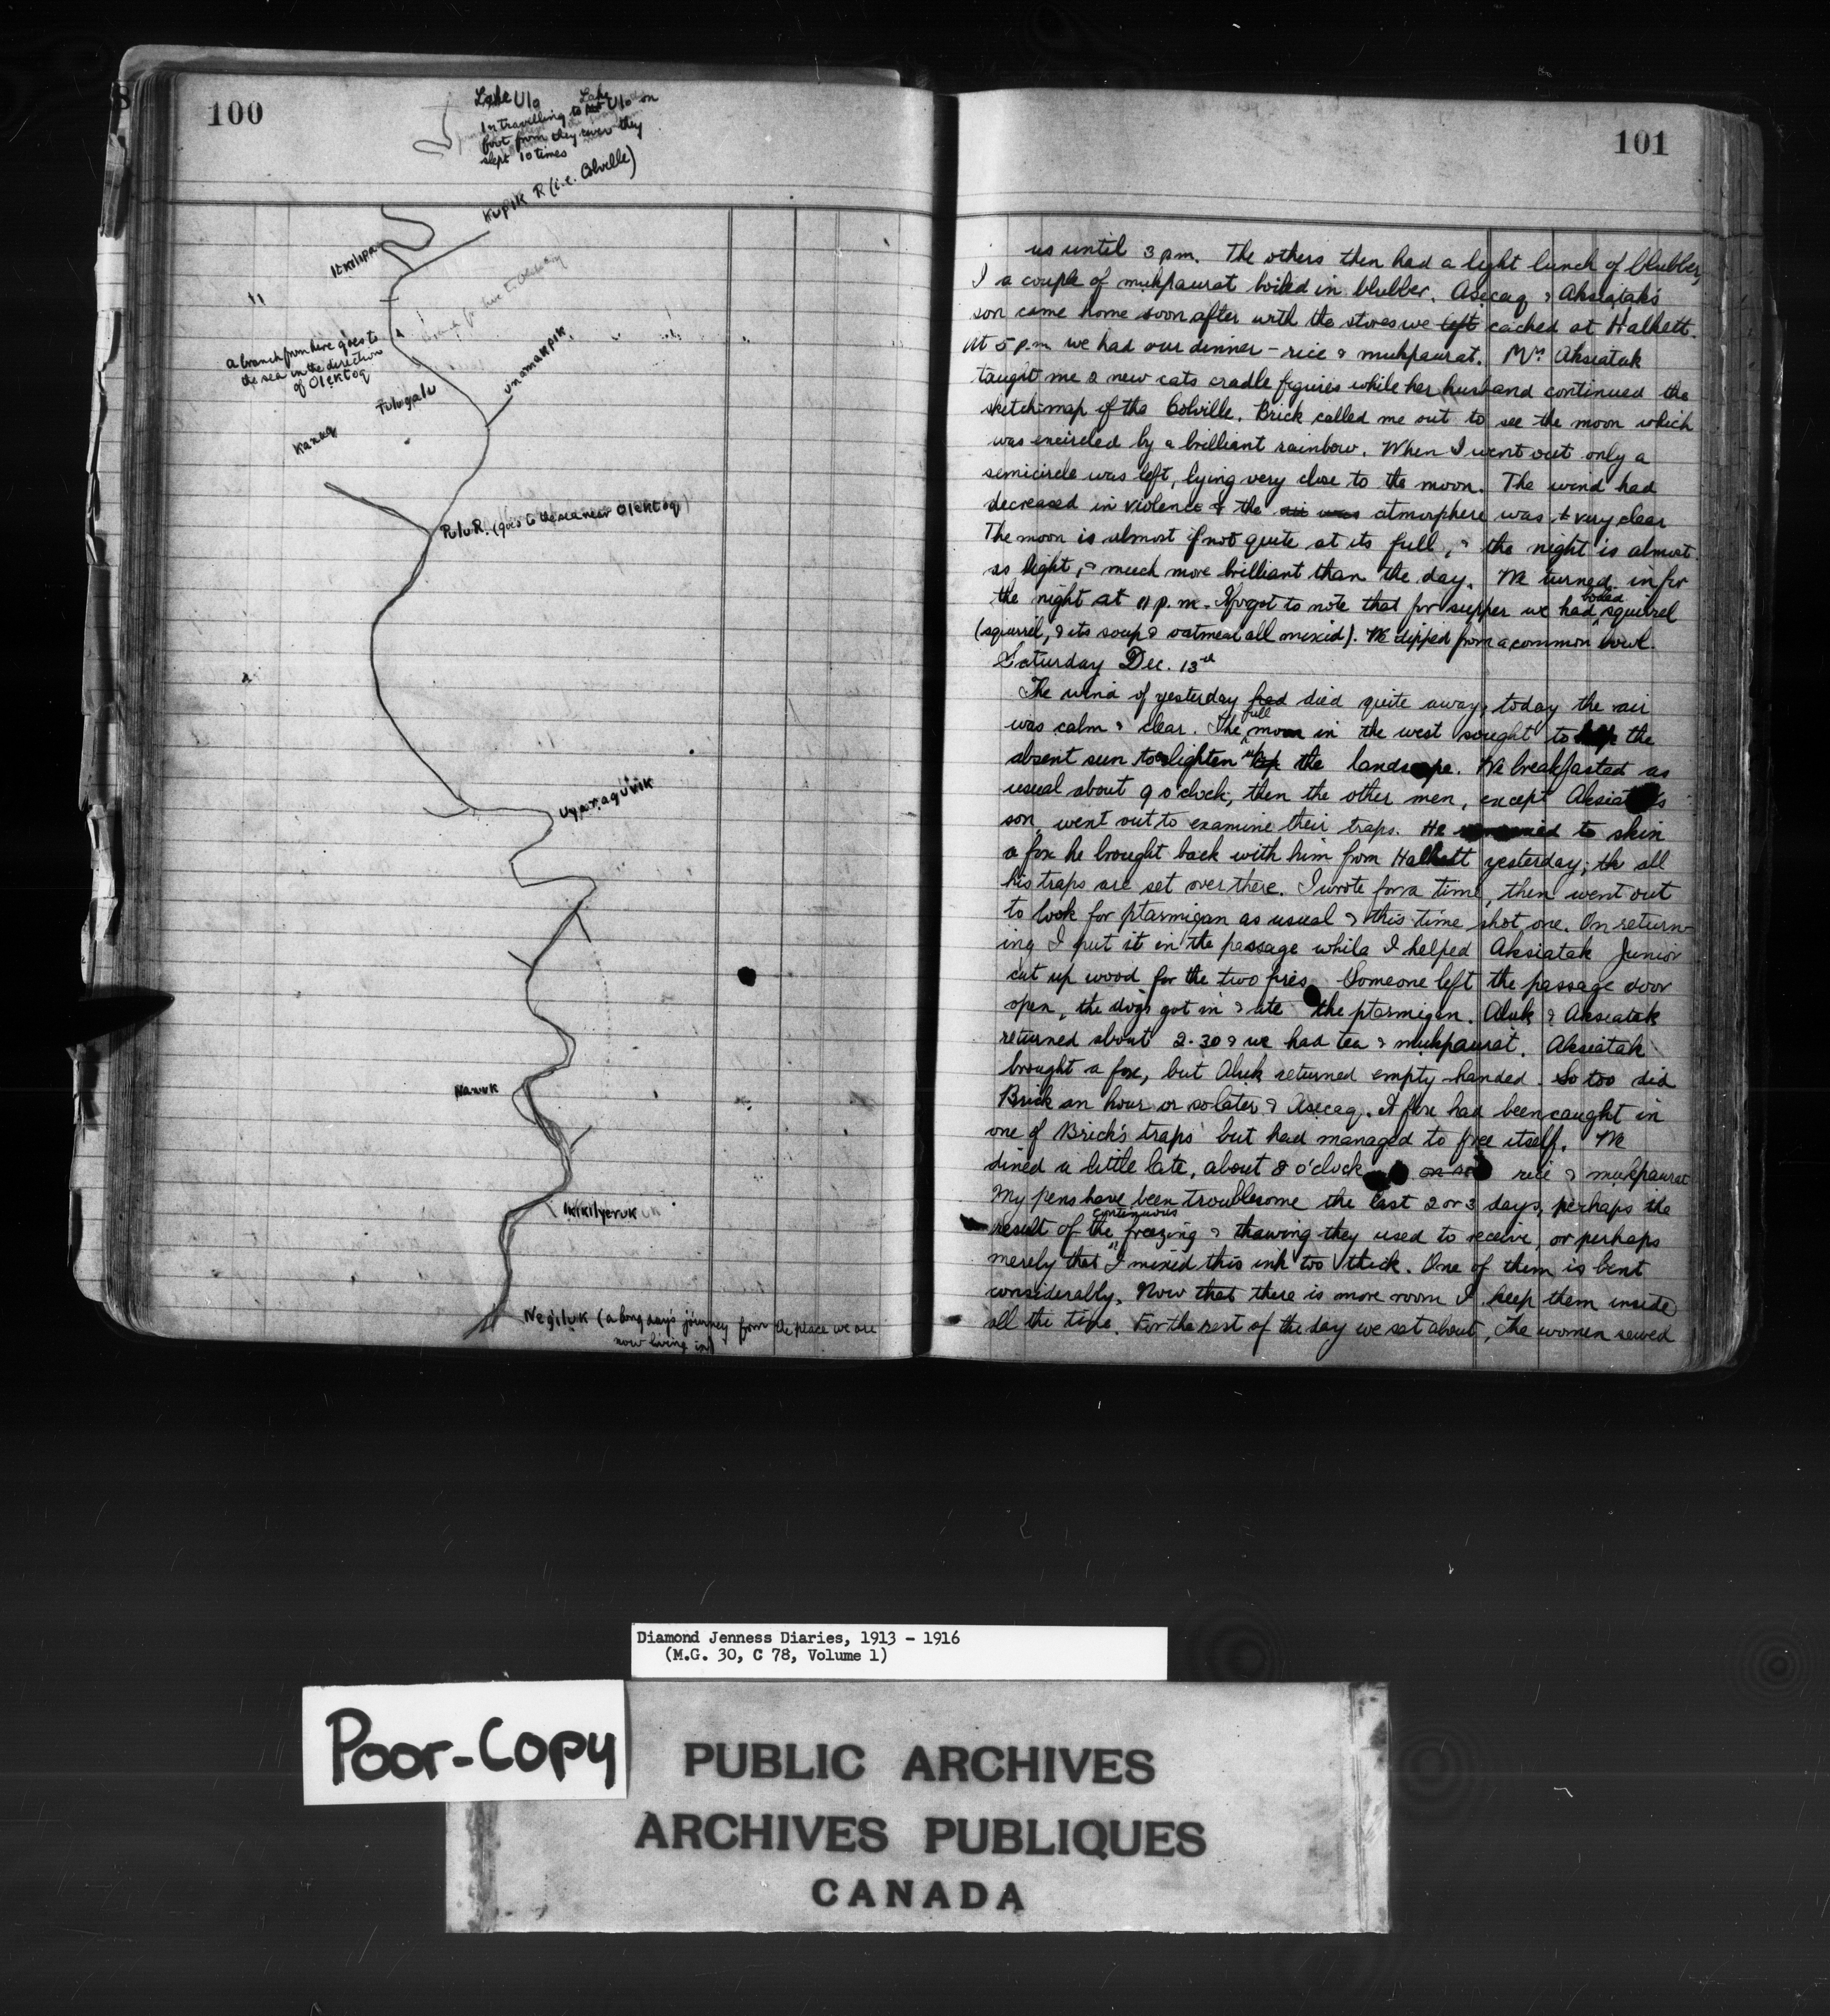 100
Lake Ulo
In travelling to Lake Ulo on
foot from they river they
slept 10 times
Kupik R (i.e. Colville)
Itkilipa
unamakpuk
a branch from here goes to
the sea in the direction
of Olektoq
Tulugalu
Kanuq
Pulu R. (goes to the sea near Olektoq)
Uyaraqivik
Nanuk
Ikikilyeruk
Negiluk (a long day's journey from the place we are
now living in)
101
us until 3 pm. The others then had a light lunch of blubber,
I a couple of mukpaurat boiled in blubber. Asecaq & Aksiatak's
son came home soon after with the stores we left cached at Halkett.
At 5 p.m we had our dinner – rice & mukpaurat. Mrs Aksiatak
taught me 2 new cats cradle figures while her husband continued the
sketch-map of the Colville. Brick called me out to see the moon which
was encircled by a brilliant rainbow. When I went out only a
semicircle was left, lying very close to the moon. The wind had
decreased in violence & the air was atmosphere was very clear
The moon is almost if not quite at its full, & the night is almost
as light, & much more brilliant than the day. We turned in for
the night at 11 p.m. I forgot to note that for supper we had boiled squirrel
(squirrel, & its soup & oatmeal all mixed). We dipped from a common bowl.
Saturday Dec. 13th
The wind of yesterday had died quite away, today the air
was calm & clear. The full moon in the west sought to help the
absent sun to lighten up the landscape. We breakfasted as
usual about 9 o'clock, then the other men, except Aksiatak's
son, went out to examine their traps. He remained to skin
a fox he brought back with him from Halkett yesterday; the all
his traps are set over there. I wrote for a time, then went out
to look for ptarmigan as usual & this time shot one. On return-
ing I put it in the passage while I helped Aksiatak Junior
cut up wood for the two fires. Someone left the passage door
open, the dogs got in & ate the ptarmigan. Aluk & Aksiatak
returned about 2.30 & we had tea & mukpaurat. Aksiatak
brought a fox, but Aluk returned empty-handed. So too did
Brick an hour or so later & Asecaq. A fox had been caught in
one of Brick's traps but had managed to free itself. We
dined a little late, about 8 o'clock on rice & mukpaurat
My pens have been troublesome the last 2 or 3 days, perhaps the
result of the continuous freezing & thawing they used to receive, or perhaps
merely that I mixed this ink too thick. One of them is bent
considerably. Now that there is more room I keep them inside
all the time. For the rest of the day we sat about, the women sewed
Diamond Jenness Diaries, 1913 - 1916
(M.G. 30, C 78, Volume 1)
Poor-Copy
PUBLIC ARCHIVES
ARCHIVES PUBLIQUES
CANADA